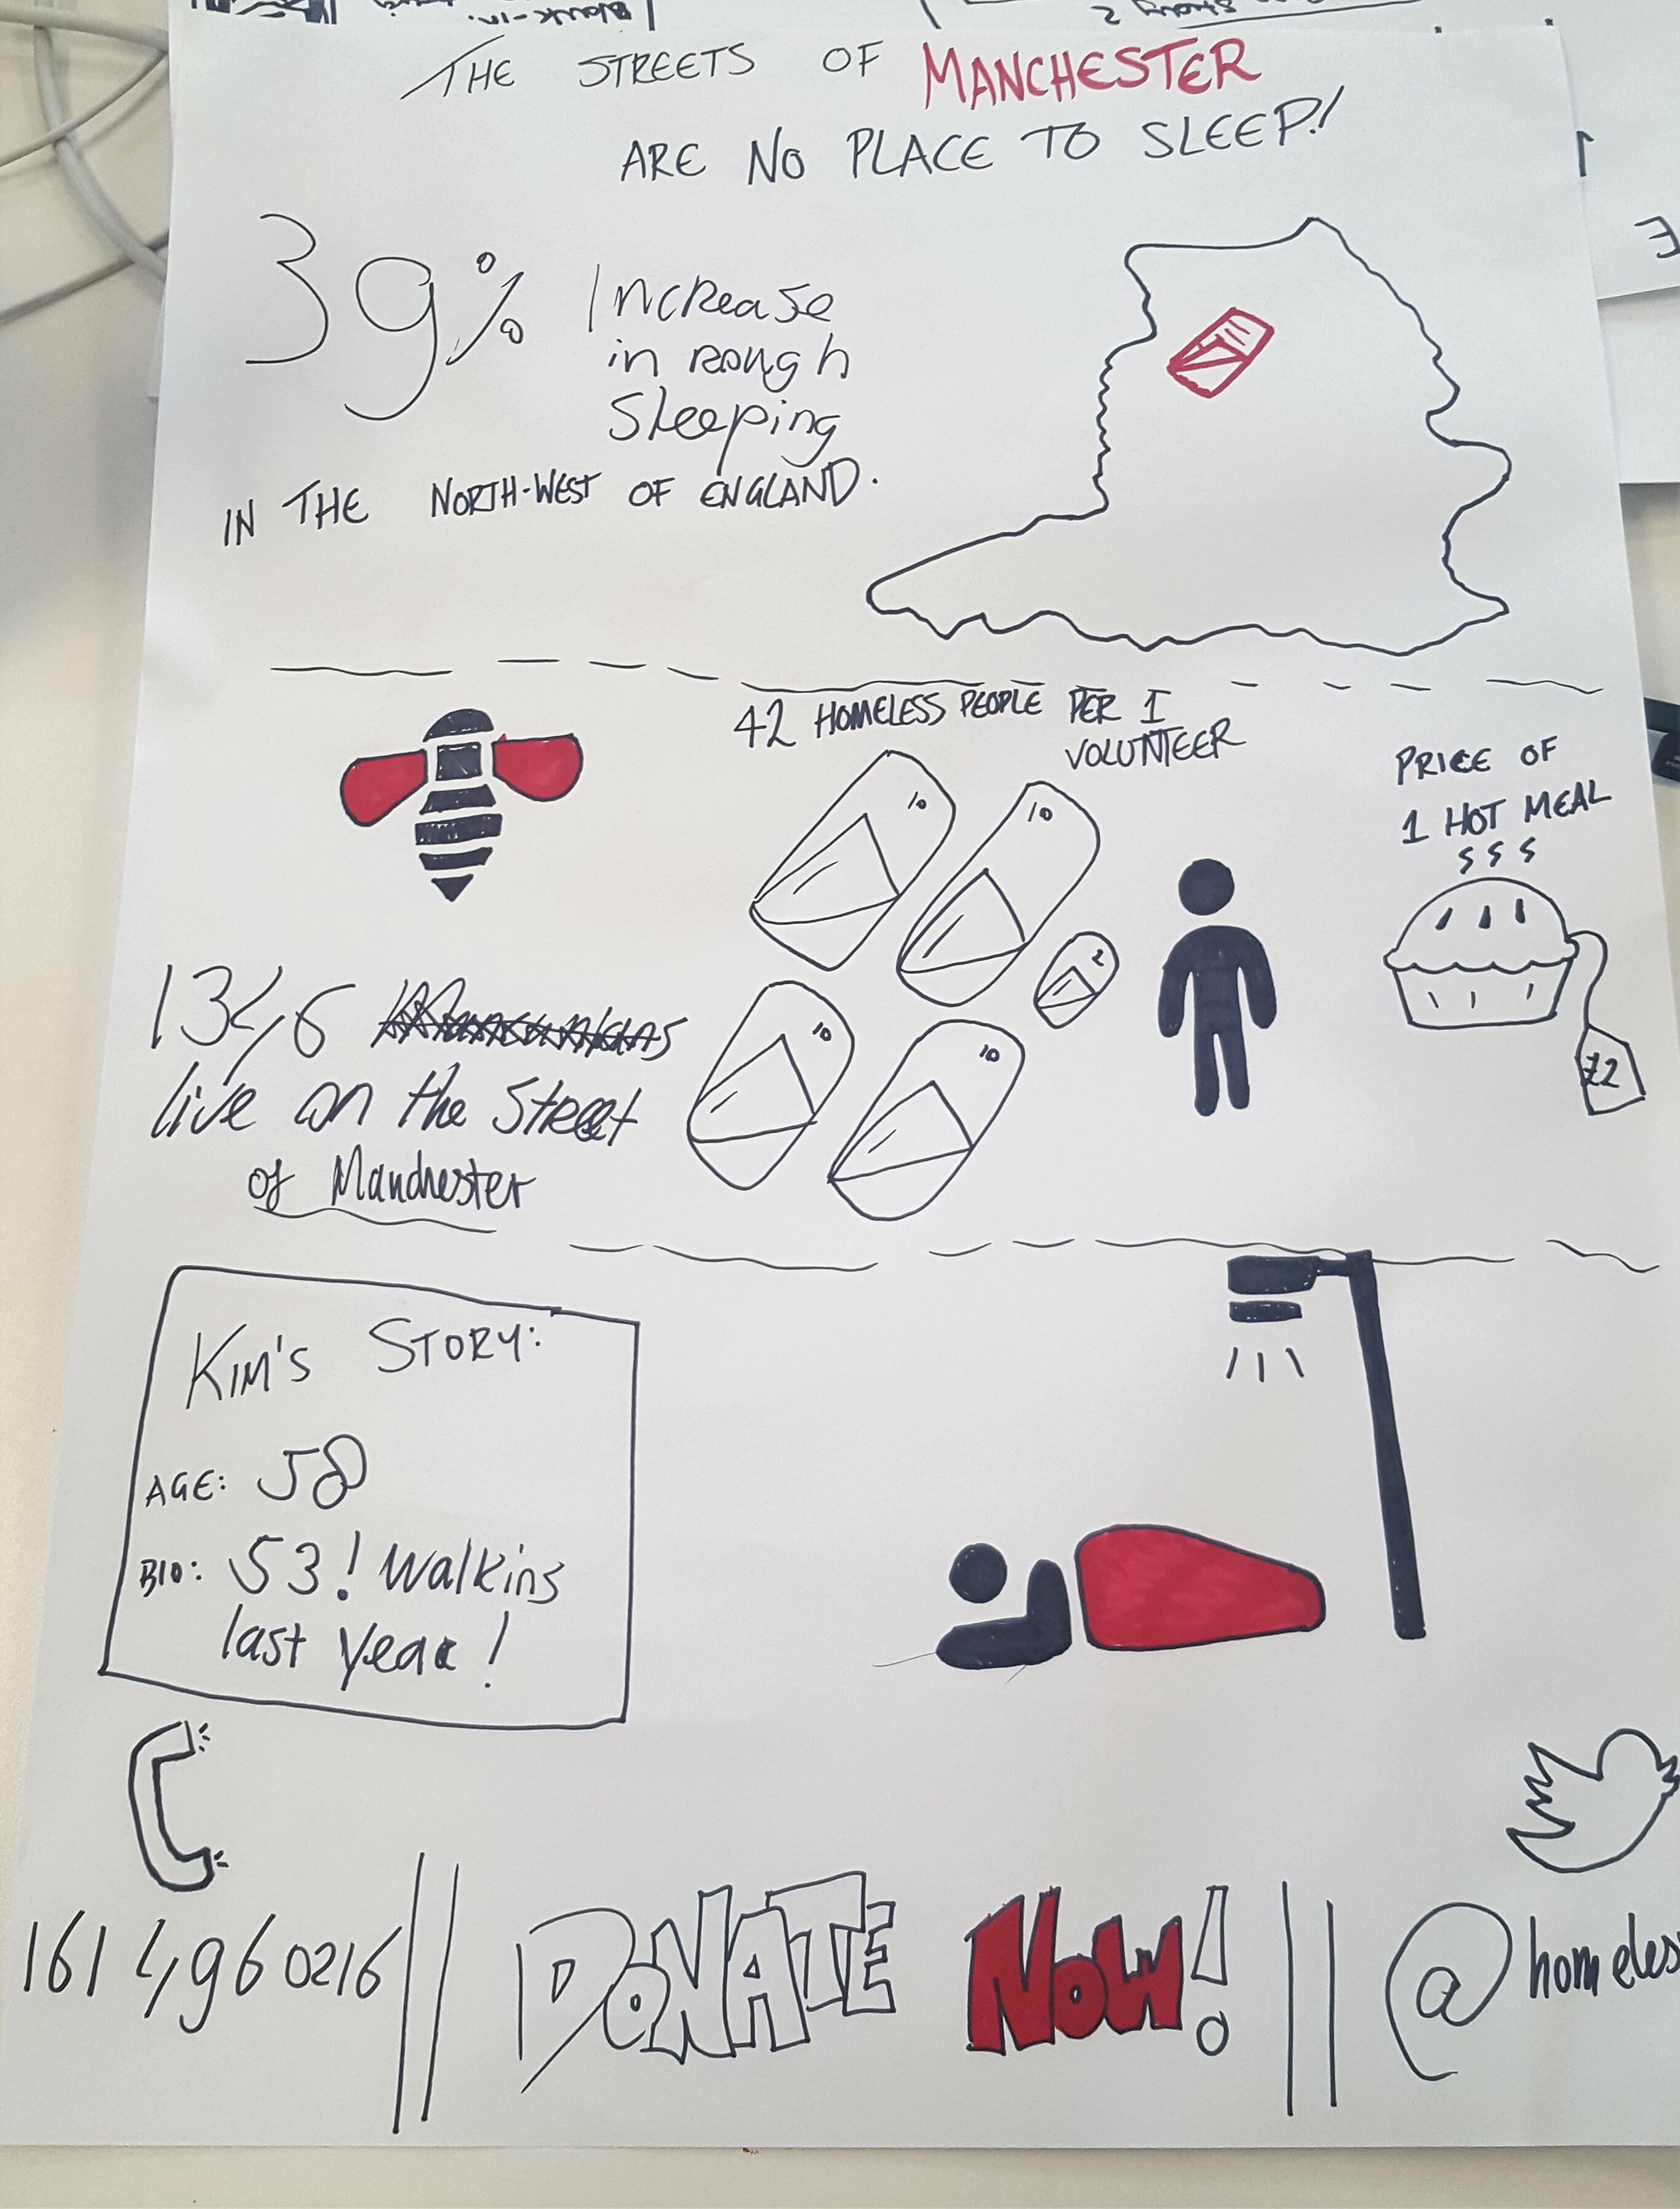 THE STREETS OF MANCHESTER
ARE NO PLACE TO SLEEP!
39% Increase
in rough
Sleeping
IN THE NORTH-WEST OF ENGLAND.
42 HOMELESS PEOPLE PER 1
VOLUNTEER
PRICE OF
1 HOT MEAL
10
10
2
10
10
£2
1346
live on the Street
of Manchester
KIM'S STORY:
AGE: 58
BIO: 53! Walkins
last year!
161 496 0216
DONATE NOW!
@homeles